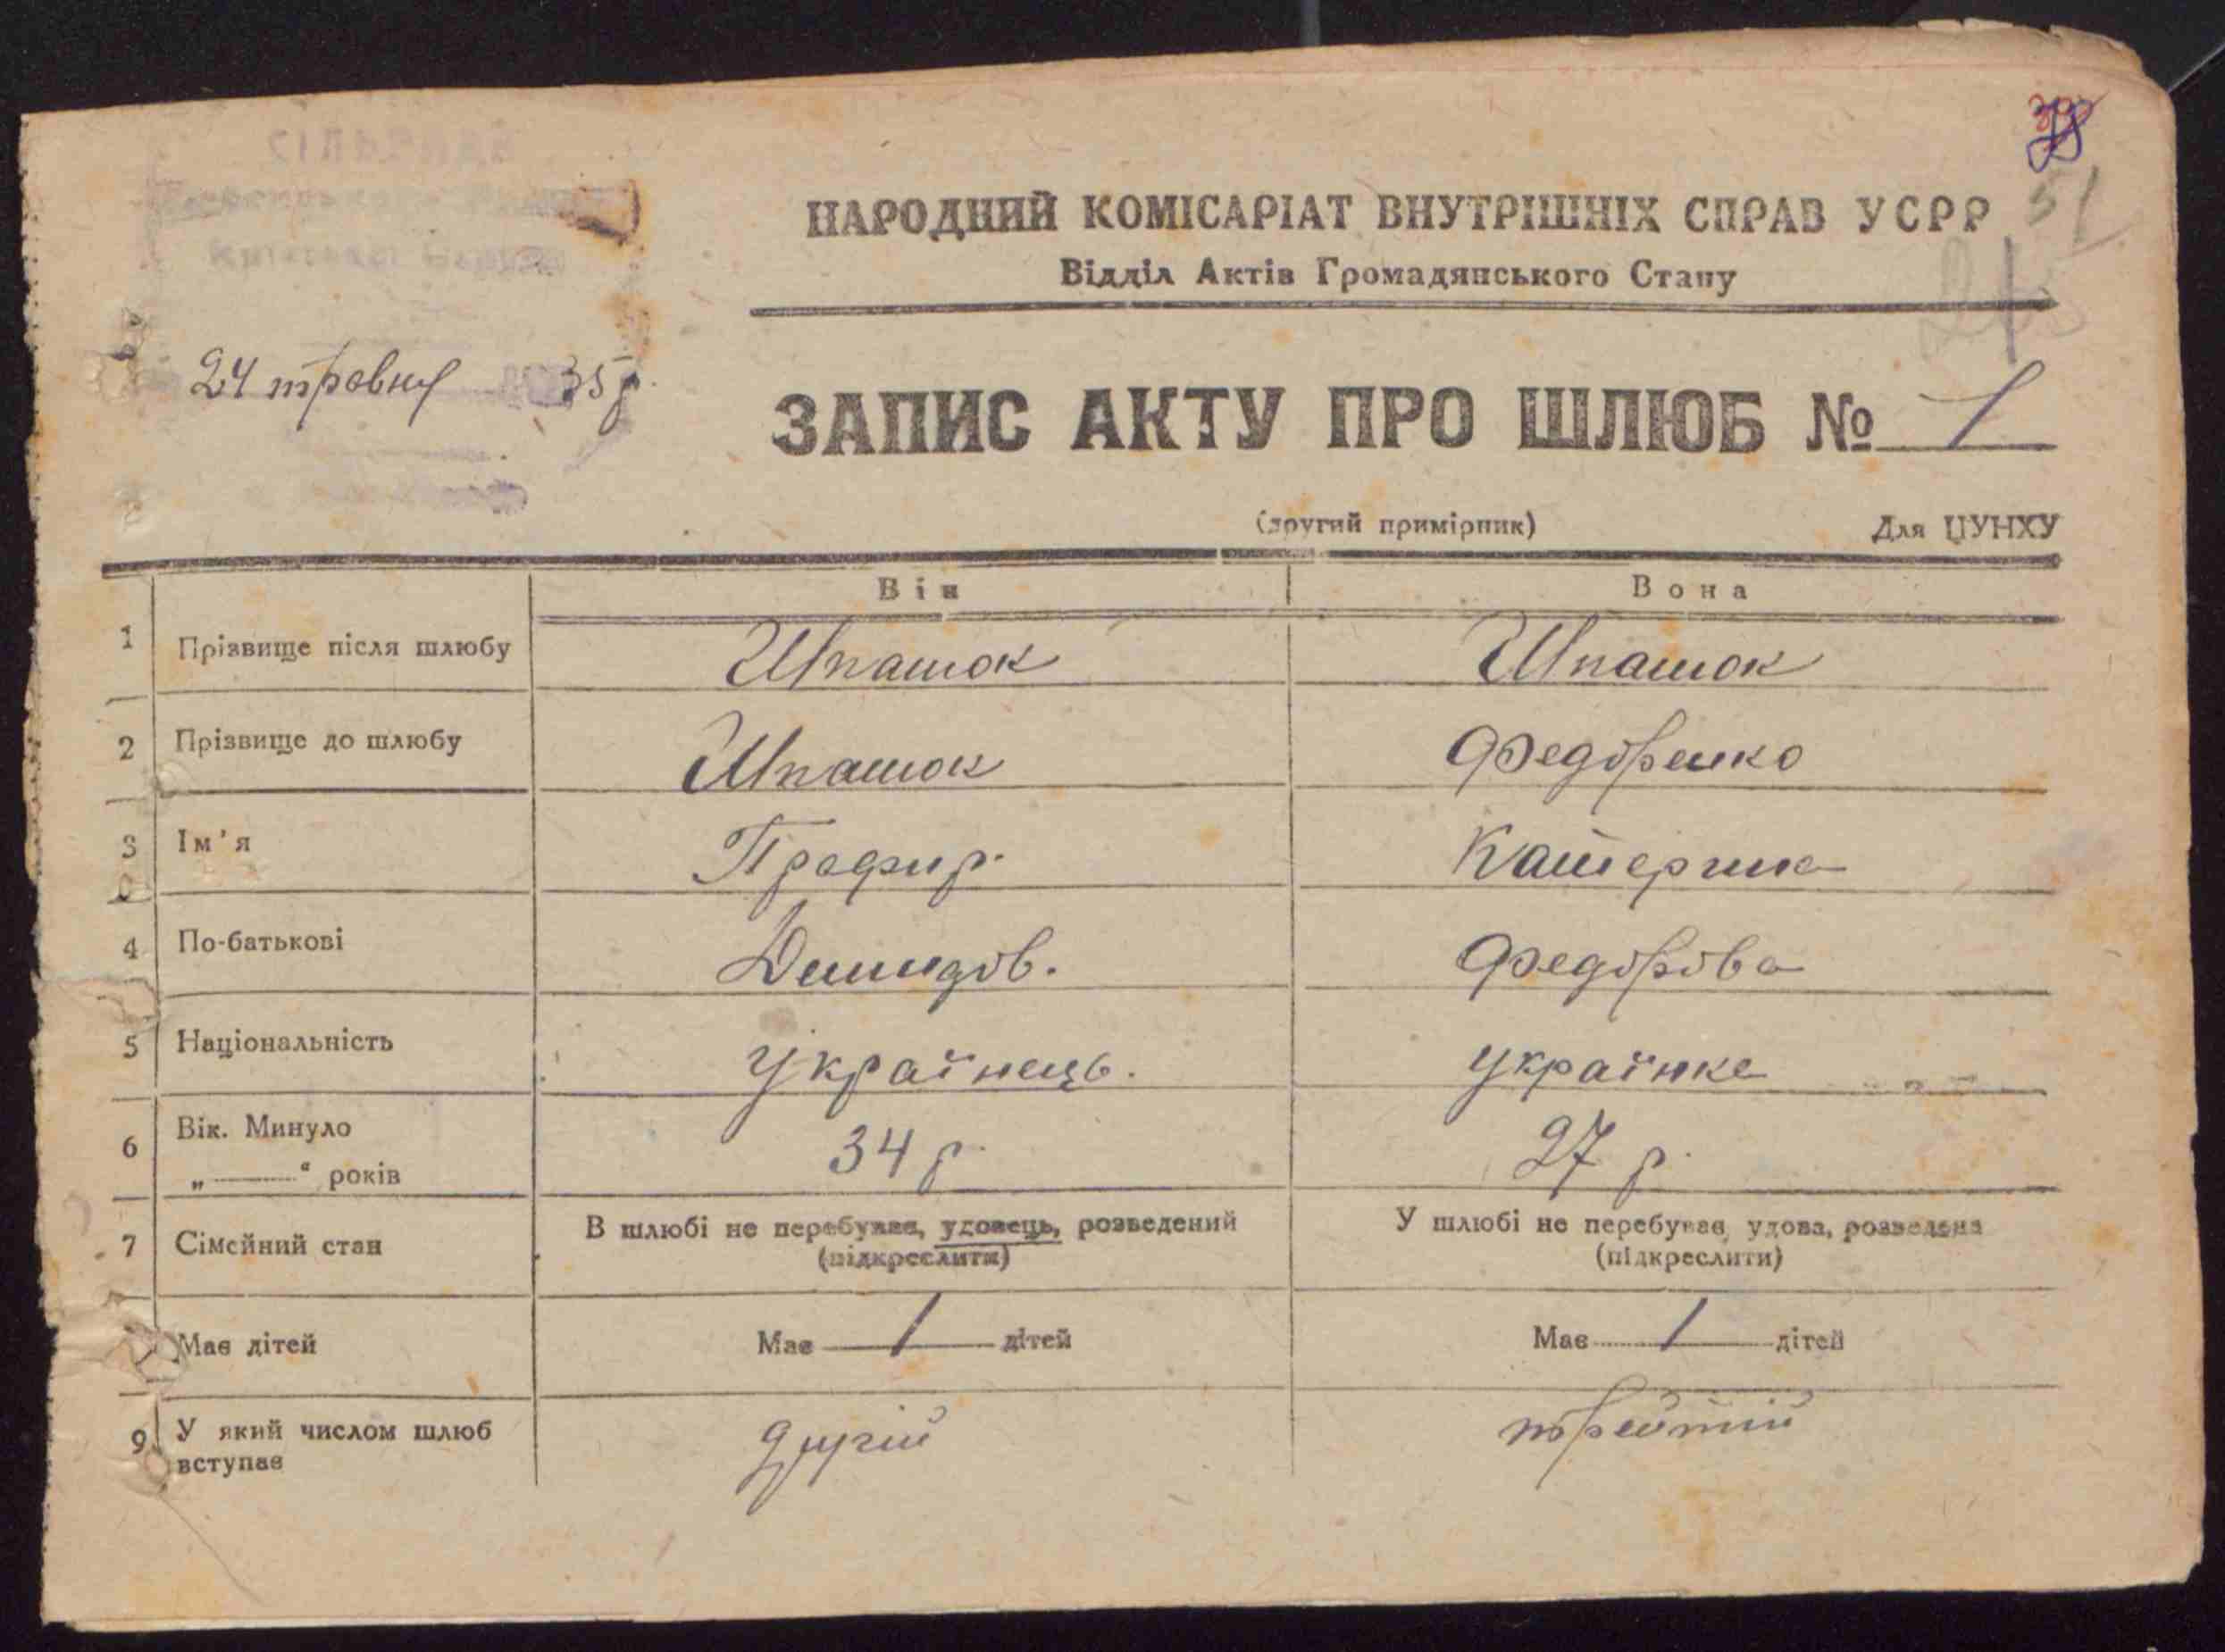 СІЛЬРАДА
НАРОДНИЙ КОМІСАРІАТ ВНУТРІШНІХ СПРАВ УСРР
51
Відділ Актів Громадянського Стану
24 травня 35 р.
ЗАПИС АКТУ ПРО ШЛЮБ № 1
(другий примірник) Для ЦУНХУ
Він Вона
1 Прізвище після шлюбу Шпашок Шпашок
2 Прізвище до шлюбу Шпашок Федоренко
3 Ім'я Прафир. Катерина
4 По-батькові Демидов. Федорова
5 Національність Українець. Українка
6 Вік. Минуло „——“ років 34 р. 27 р.
7 Сімейний стан В шлюбі не перебував, удовець, розведений (підкреслити) У шлюбі не перебував, удова, розведена (підкреслити)
Має дітей Має 1 дітей Має 1 дітей
9 У який числом шлюб вступає другій трейтій